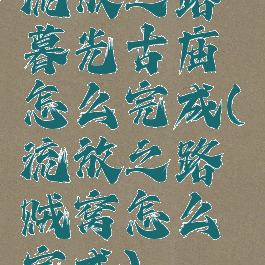 流放之路
暮光古庙
怎么完成(
流放之路
贼窝怎么
完成)